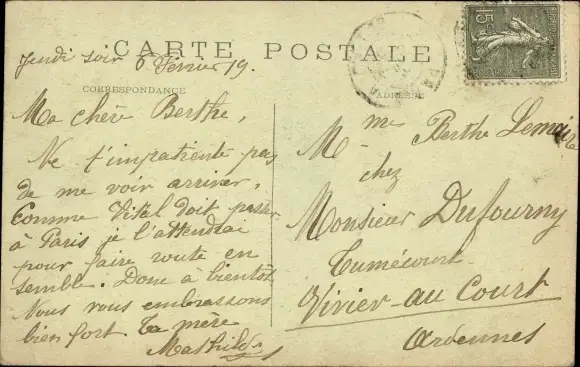 CARTE POSTALE
Jeudi soir 6 Février 19.
CORRESPONDANCE
Ma chère Berthe,
Ne t'impatiente pas
de me voir arriver,
Comme Vital doit passer
à Paris je l'attendrai
pour faire route en
semble. Donc à bientôt
Nous vous embrassons
bien fort. Ta mère
Mathilde
ADRESSE
Mme Berthe Lemaire
chez
Monsieur Dufourny
Tumécourt
Vivier-au Court
Ardennes
15c